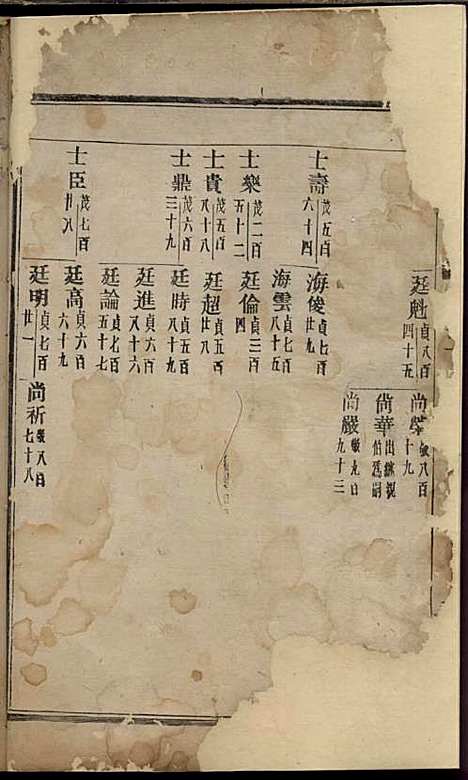 廷魁 貞八百四十五
尚 敏八百十九
尚華 出繼親伯為嗣
尚嚴 九十三
士壽 茂五百六十四
海俊 貞七百廿九
海雲 貞七百八十五
士樂 茂二百五十二
廷倫 貞三百四
士貴 茂五百八十八
廷超 貞五百廿八
士鼎 茂六百三十九
廷時 貞五百八十九
廷進 貞六百八十六
廷論 貞七百五十七
士臣 茂七百廿八
廷高 貞六百六十九
廷明 貞七百廿一
尚祈 敏八百七十八